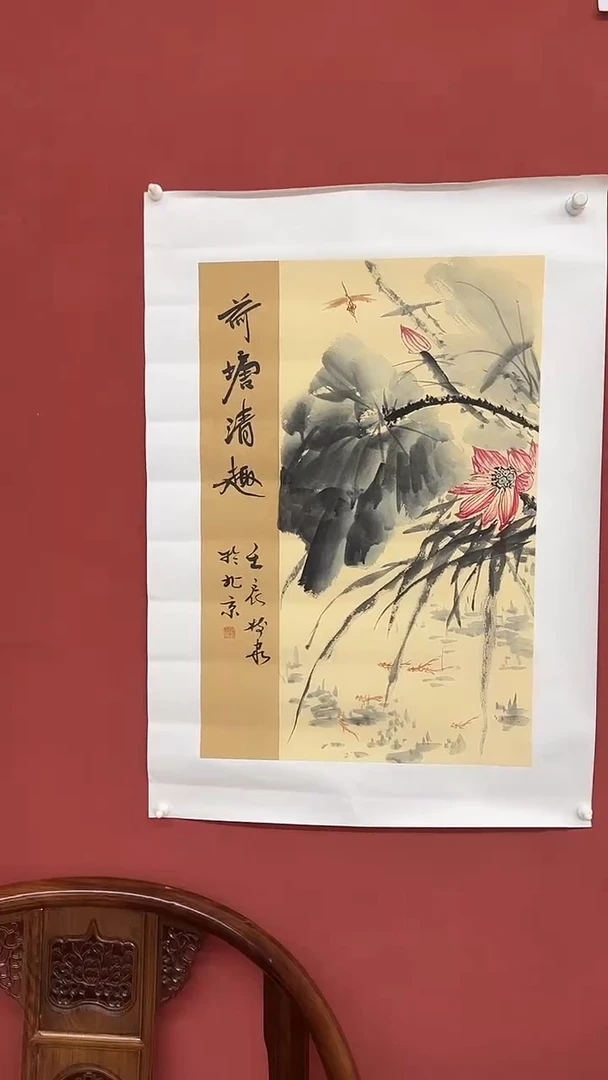 荷塘清趣
壬辰
於北京